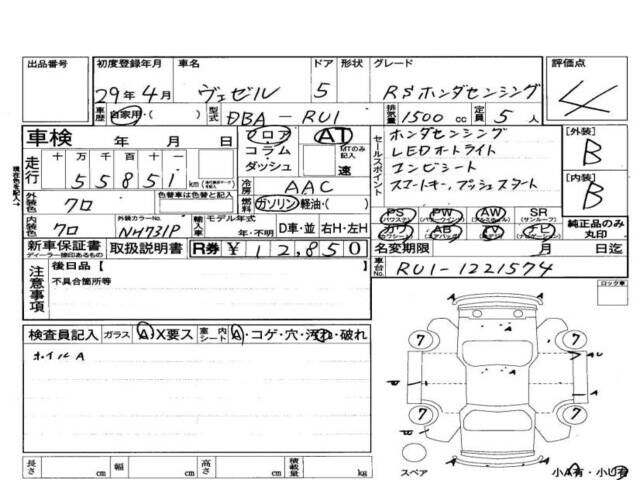 出品番号 初度登録年月 車名 ドア 形状 グレード 評価点
29年4月 ヴェゼル 5 RSホンダセンシング 4
車歴 自家用・( ) 型式 DBA-RU1 排気量 1500 cc 定員 5 人
車検 年 月 日 フロア AT セールスポイント ホンダセンシング [外装]
コラム MTのみ記入 LEDオートライト B
走行 十 万 千 百 十 一 ダッシュ 速 コンビシート
55851 km スマートキー、プッシュスタート [内装]
冷房 AAC B
外装色 クロ 色替車は色替と記入 燃料 ガソリン・軽油・( ) PS PW AW SR
(パワステ) (パワーウィンド) (アルミホイル) (サンルーフ)
内装色 クロ 外装カラーNo. NH731P 輸入車 モデル年式 カワ AB TV ナビ 純正品のみ丸印
年・不明 D車・並 右H・左H (カワシート) (エアバッグ) (テレビ) (ナビゲーション)
新車保証書 取扱説明書 R券 ¥ 12,850 名変期限 月 日迄
ディーラー捺印あるもの
注意事項 後日品【 】 車台No. RU1-1221574
不具合箇所等 ロック車
検査員記入 ガラス A・X要ス 室内シート A・コゲ・穴・汚れ・破れ
ホイルA
7 7
A AU
B A
B A
A
7 7
長さ cm 幅 cm 高さ cm 積載量 kg スペア 小A有・小U有
現在色を記入